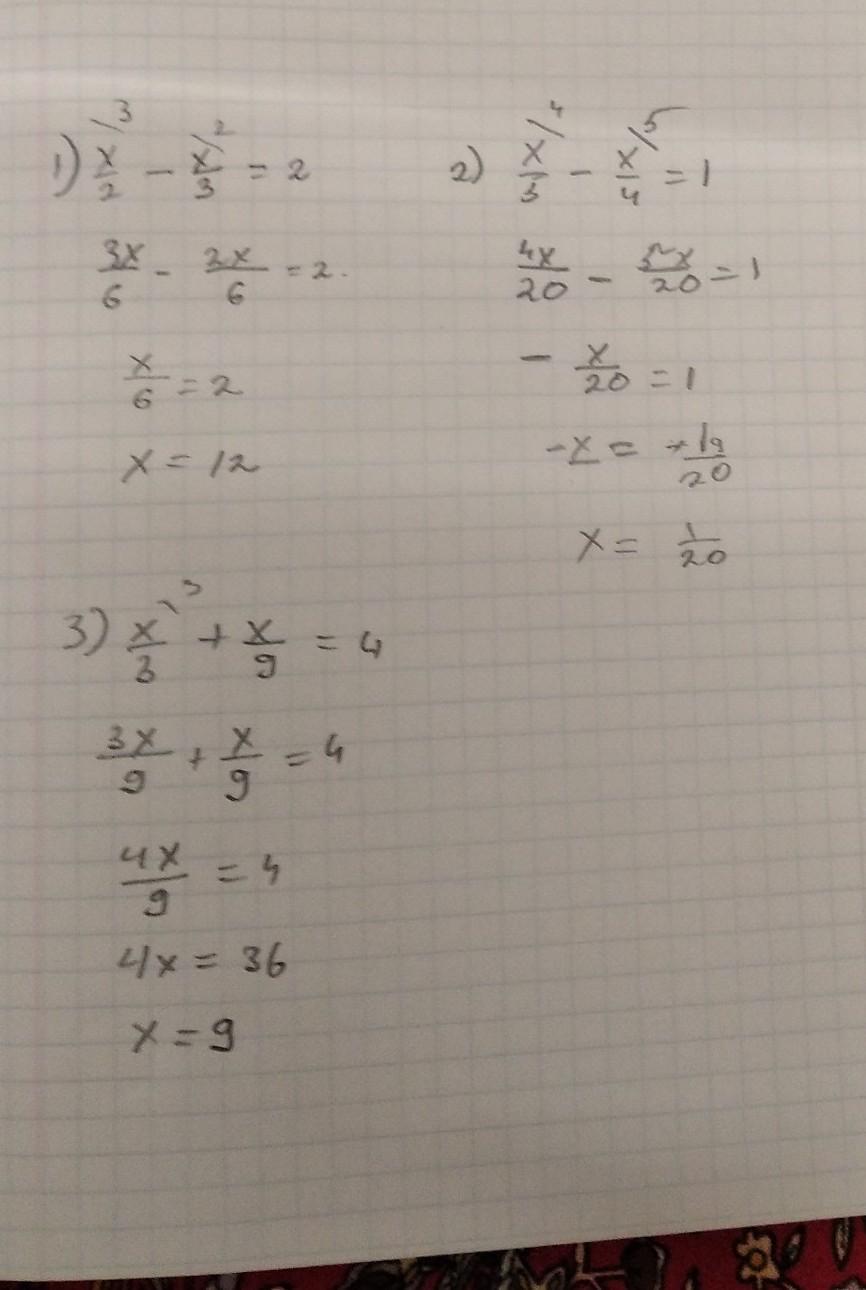 1) x/2 \3 - x/3 \2 = 2
3x/6 - 2x/6 = 2.
x/6 = 2
x = 12
2) x/5 \4 - x/4 \5 = 1
4x/20 - 5x/20 = 1
- x/20 = 1
-x =
x = 1/20
3) x/3 \3 + x/9 = 4
3x/9 + x/9 = 4
4x/9 = 4
4x = 36
x = 9